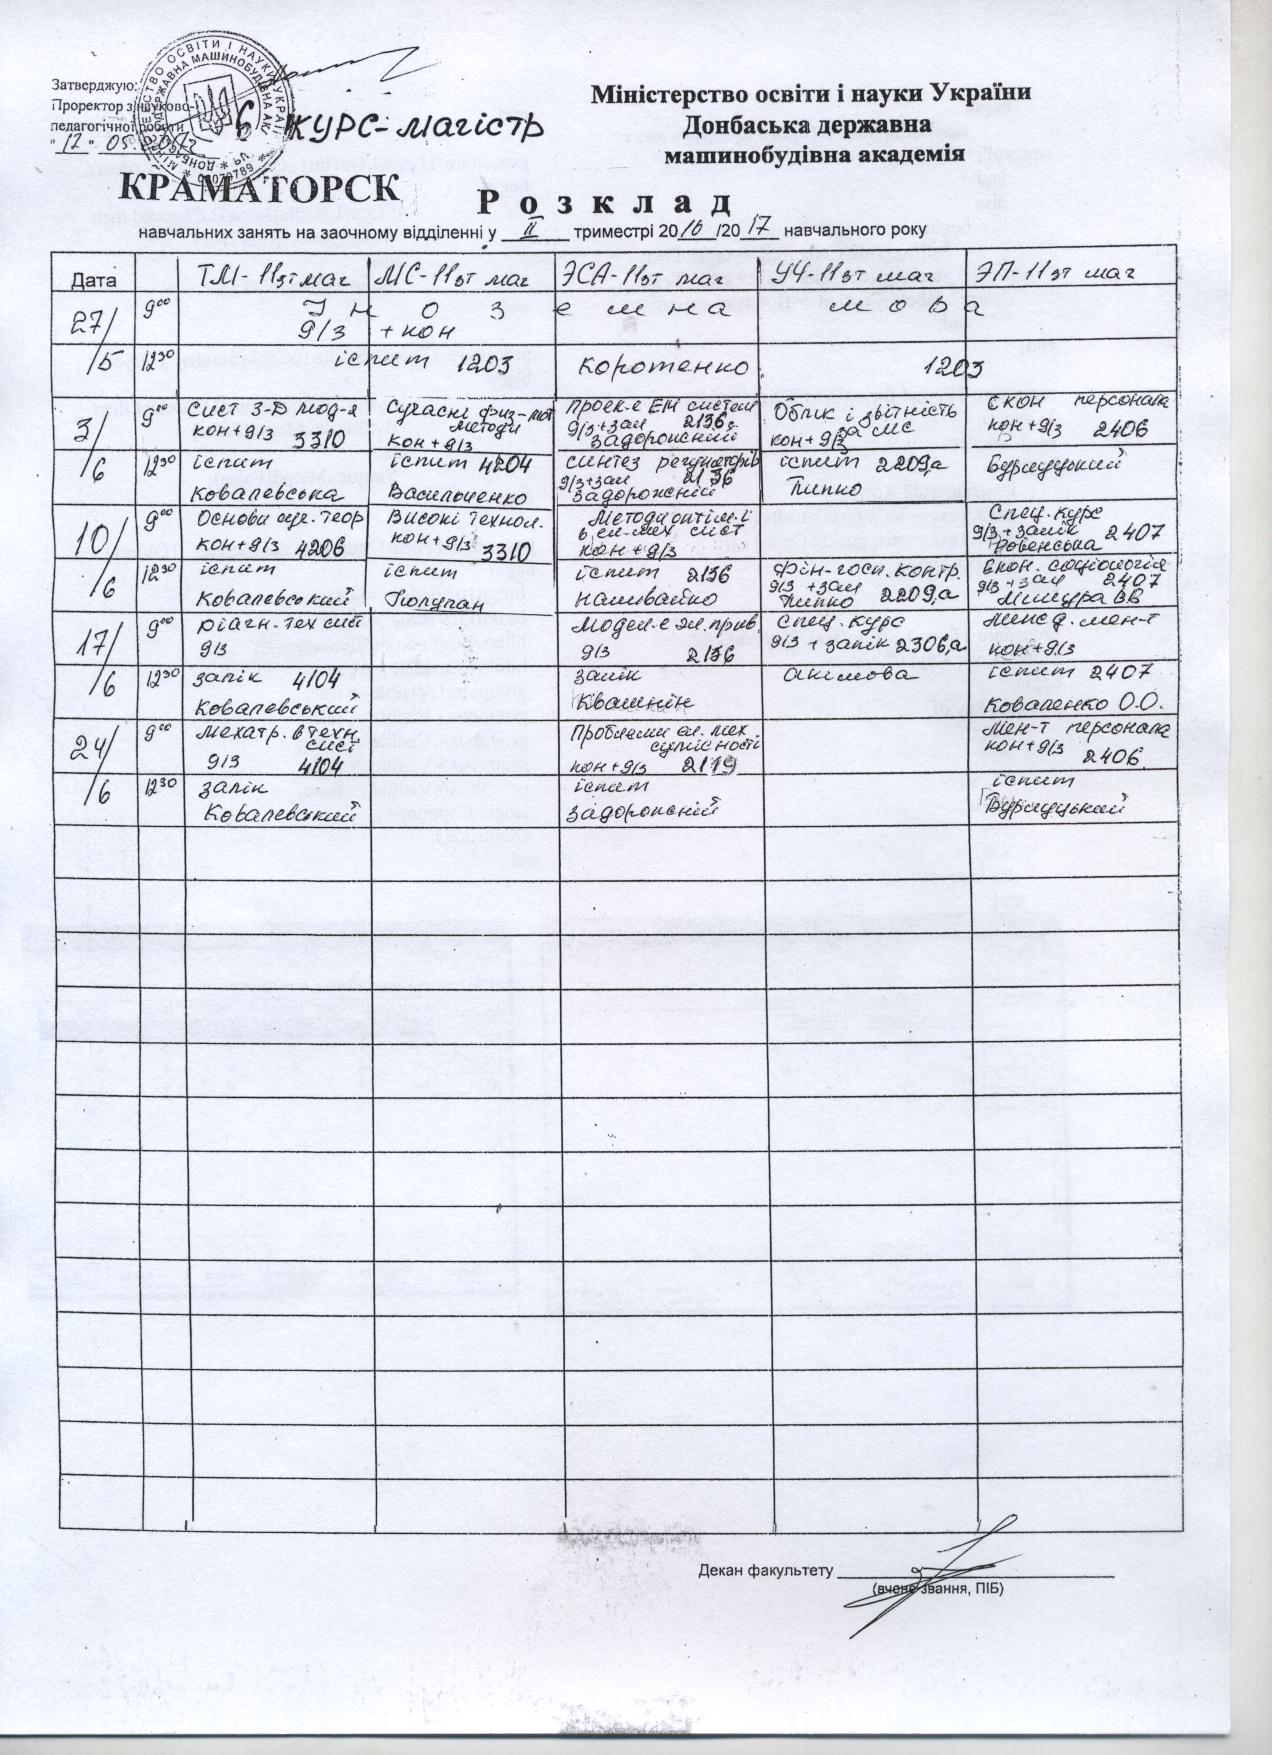 Затверджую:
Проректор з науково-
педагогічної роботи
"12" 05. 2017
6 курс-магістр
Міністерство освіти і науки України
Донбаська державна
машинобудівна академія
КРАМАТОРСК
Розклад
навчальних занять на заочному відділенні у II триместрі 2016/2017 навчального року
Дата ТМ-11зт маг МС-11зт маг ЭСА-11зт маг УЧ-11зт маг ЭП-11зт маг
27/5 9⁰⁰ Іноземна мова
д/з + кон
12³⁰ іспит 1203 Коротенко 1203
3/6 9⁰⁰ Сист 3-D мод-я
кон+д/з 3310
Сучасні физ-мат
методи
кон+д/з
Проек-е ЕМ систем
д/з+зал 2136
Задорожній
Облик і звітність
кон+д/з за МС
Екон персонала
кон+д/з 2406
12³⁰ іспит
Ковалевська
іспит 4204
Васильченко
синтез регуляторів
д/з+зал 2136
Задорожній
іспит 2209а
Типко
Бурлуцький
10/6 9⁰⁰ Основи теор
кон+д/з 4206
Високі технол.
кон+д/з 3310
Методи оптім-ї
в ел-мех сист
кон+д/з
Спец. курс
д/з+залік 2407
Ровенська
12³⁰ іспит
Ковалевський
іспит
Полупан
іспит 2136
Наливайко
Фін-госп. контр.
д/з+зал
Типко 2209а
Екон. соціологія
д/з+зал 2407
Мішура ВВ
17/6 9⁰⁰ Діагн. тех сист
д/з
Модел-е эл. прив.
д/з 2136
Спец. курс
д/з + залік 2306а
мен-т
кон+д/з
12³⁰ залік 4104
Ковалевський
залік
Квашнін
Акімова
іспит 2407
Коваленко О.О.
24/6 9⁰⁰ Мехатр. в техн
сист
д/з 4104
Проблеми ел. мех
сумісності
кон+д/з 2119
Мен-т персонала
кон+д/з 2406
12³⁰ залік
Ковалевский
іспит
Задорожній
іспит
Бурлуцький
Декан факультету
(вчене звання, ПІБ)